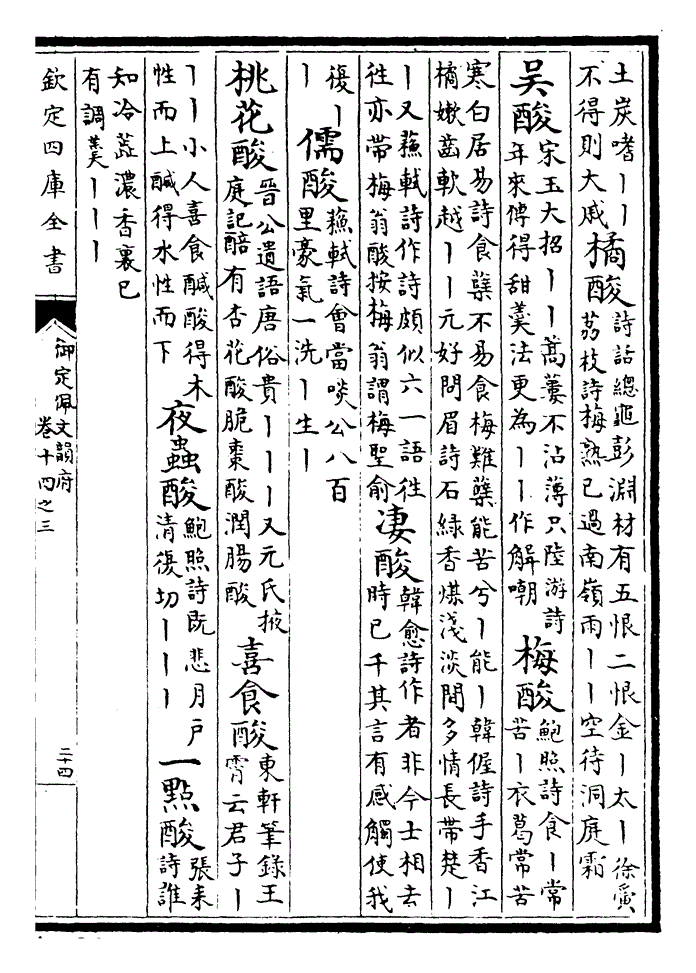 土炭嗜丨丨
不得則大戚
橘酸
詩話總龜彭淵材有五恨二恨金丨太丨徐夤
荔枝詩梅熟已過南嶺雨丨丨空待洞庭霜
吴酸
宋玉大招丨丨蒿蔞不沾薄只陸游詩
年來傳得甜羹法更為丨丨作解嘲
梅酸
鮑照詩食丨常
苦丨衣葛常苦
寒白居易詩食蘖不易食梅難蘖能苦兮丨能丨韓偓詩手香江
橘嫩齒軟越丨丨元好問眉詩石緑香煤淺淡間多情長帶楚丨
丨又蘓軾詩作詩頗似六一語往
往亦帶梅翁酸按梅翁謂梅聖俞
凄酸
韓愈詩作者非今士相去
時已千其言有感觸使我
復丨
丨
儒酸
蘓軾詩會當啖公八百
里豪氣一洗丨生丨
桃花酸
晉公遺語唐俗貴丨丨丨又元氏掖
庭記醅有杏花酸脆棗酸潤腸酸
喜食酸
東軒筆錄王
霄云君子丨
丨丨小人喜食鹹酸得木
性而上鹹得水性而下
夜蟲酸
鮑照詩既悲月戶
清復切丨丨丨
一點酸
張耒
詩誰
知冷蕊濃香裏已
有調羹丨丨丨
欽定四庫全書
御定佩文韻府
卷十四之三
二十四